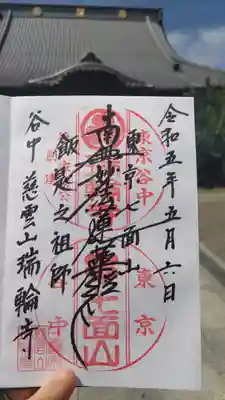 令和五年五月六日
東京七面山
南無妙法蓮華経
飯匙之祖師
谷中 慈雲山瑞輪寺
東京谷中
東京
七面山